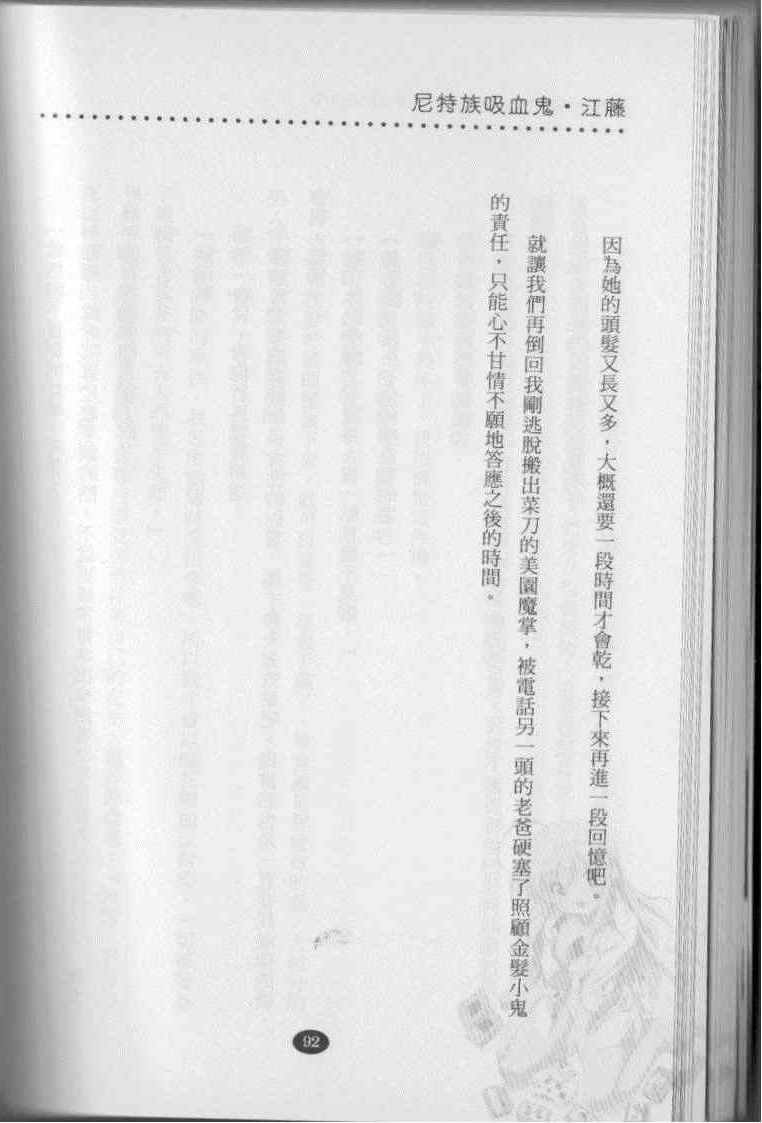 尼特族吸血鬼・江藤
因為她的頭髮又長又多，大概還要一段時間才會乾，接下來再進一段回憶吧。
就讓我們再倒回我剛逃脫搬出菜刀的美園魔掌，被電話另一頭的老爸硬塞了照顧金髮小鬼
的責任，只能心不甘情不願地答應之後的時間。
92